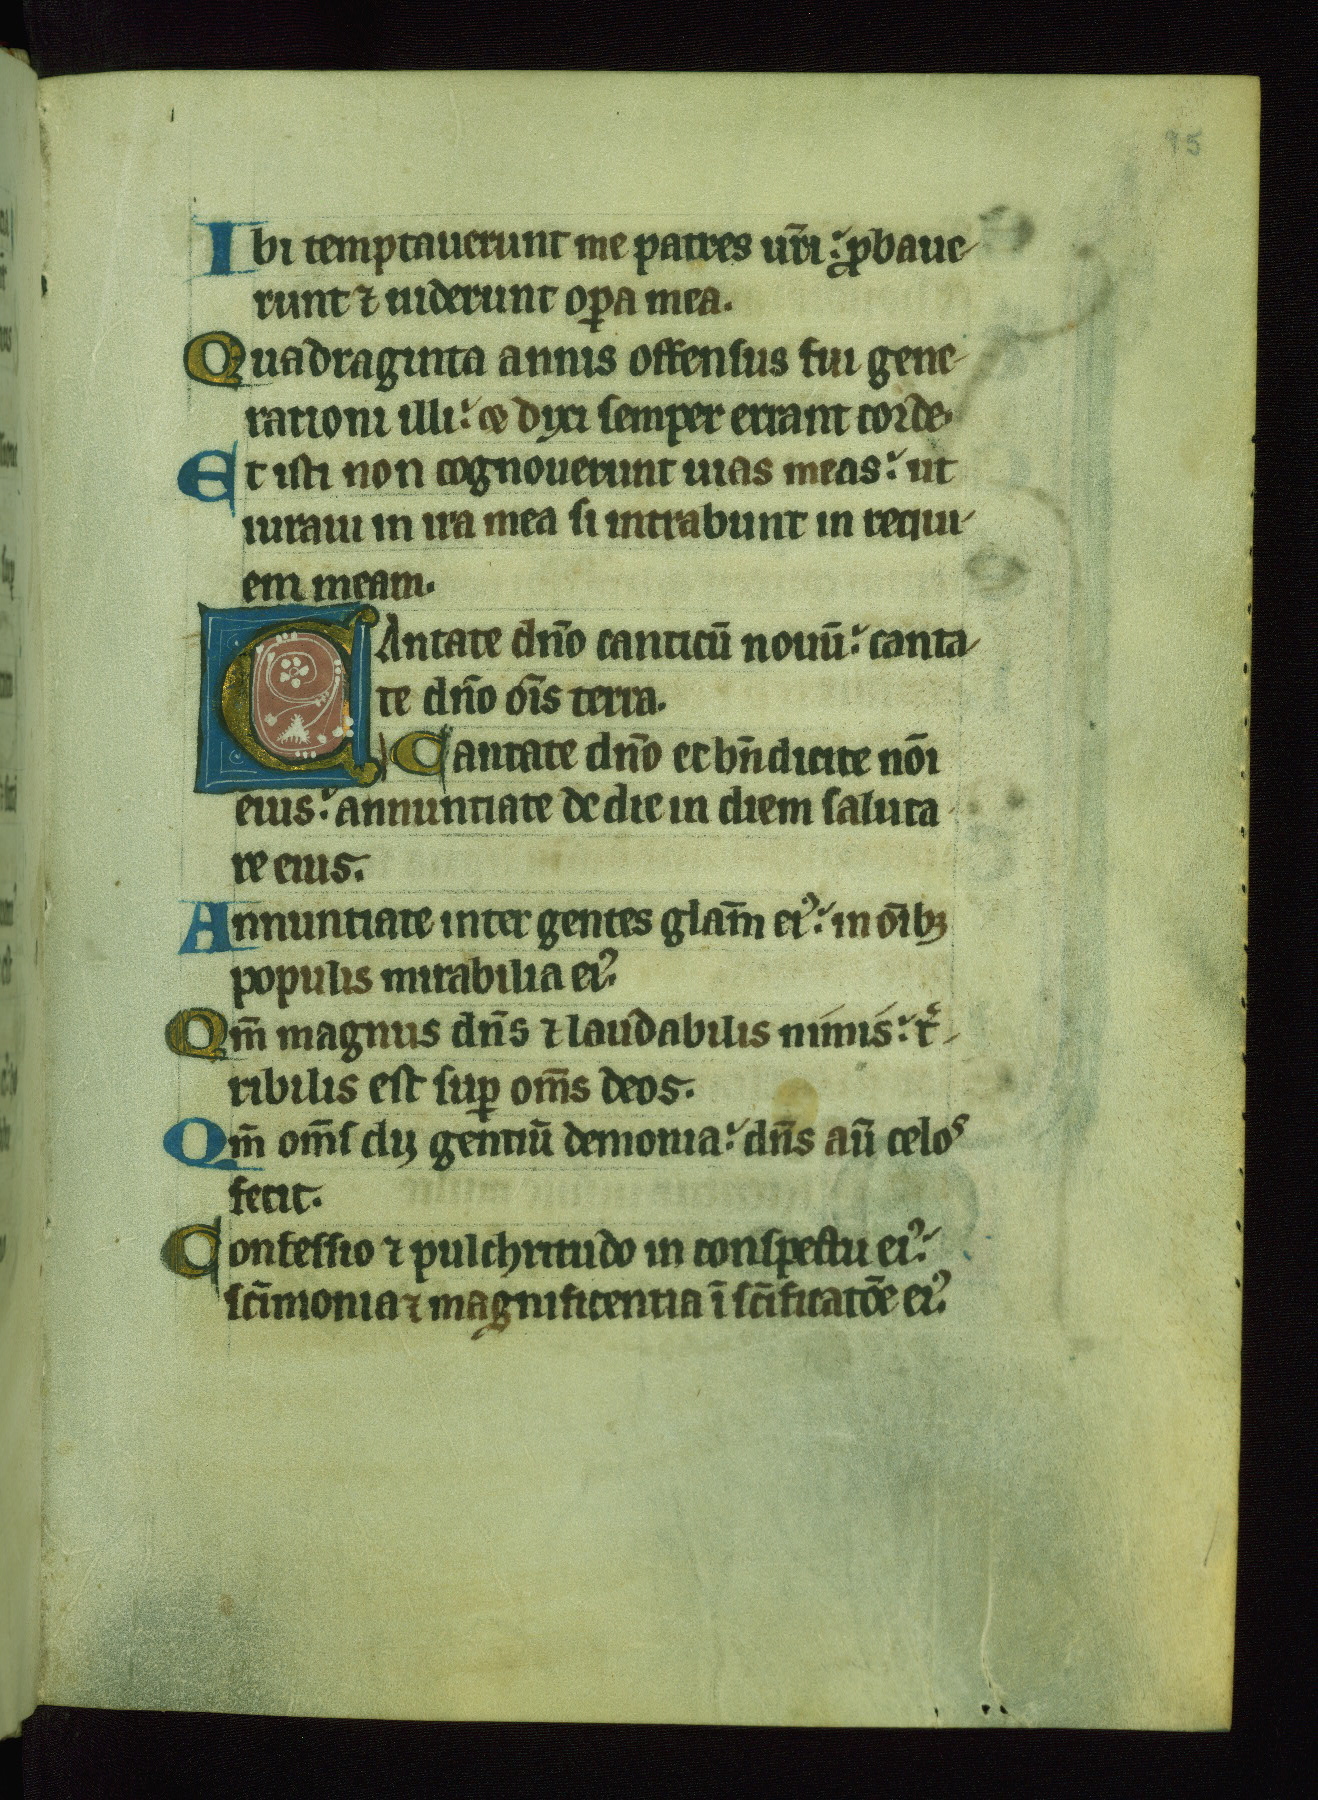 95
Ibi temptauerunt me patres ur̄i: ꝓbaue-
runt ⁊ uiderunt oꝑa mea.
Quadraginta annis offensus fui gene-
rationi illi: et dixi semper errant corde.
Et isti non cognouerunt uias meas: ut
iuraui in ira mea si intrabunt in requi-
em meam.
CAntate dn̄o canticū nouū: canta-
te dn̄o ōis terra.
Cantate dn̄o et bn̄dicite nōi
eius: annuntiate de die in diem saluta-
re eius.
Annuntiate inter gentes glam̄ ei᾿: in ōibꝫ
populis mirabilia ei᾿.
Qm̄ magnus dn̄s ⁊ laudabilis nimis: t͛-
ribilis est suꝑ om̄s deos.
Qm̄ om̄s dij gentiū demonia: dn̄s aū celoˢ
fecit.
Confessio ⁊ pulchritudo in conspectu ei᾿:
sc̄imonia ⁊ magnificentia ī sc̄ificatōe ei᾿.